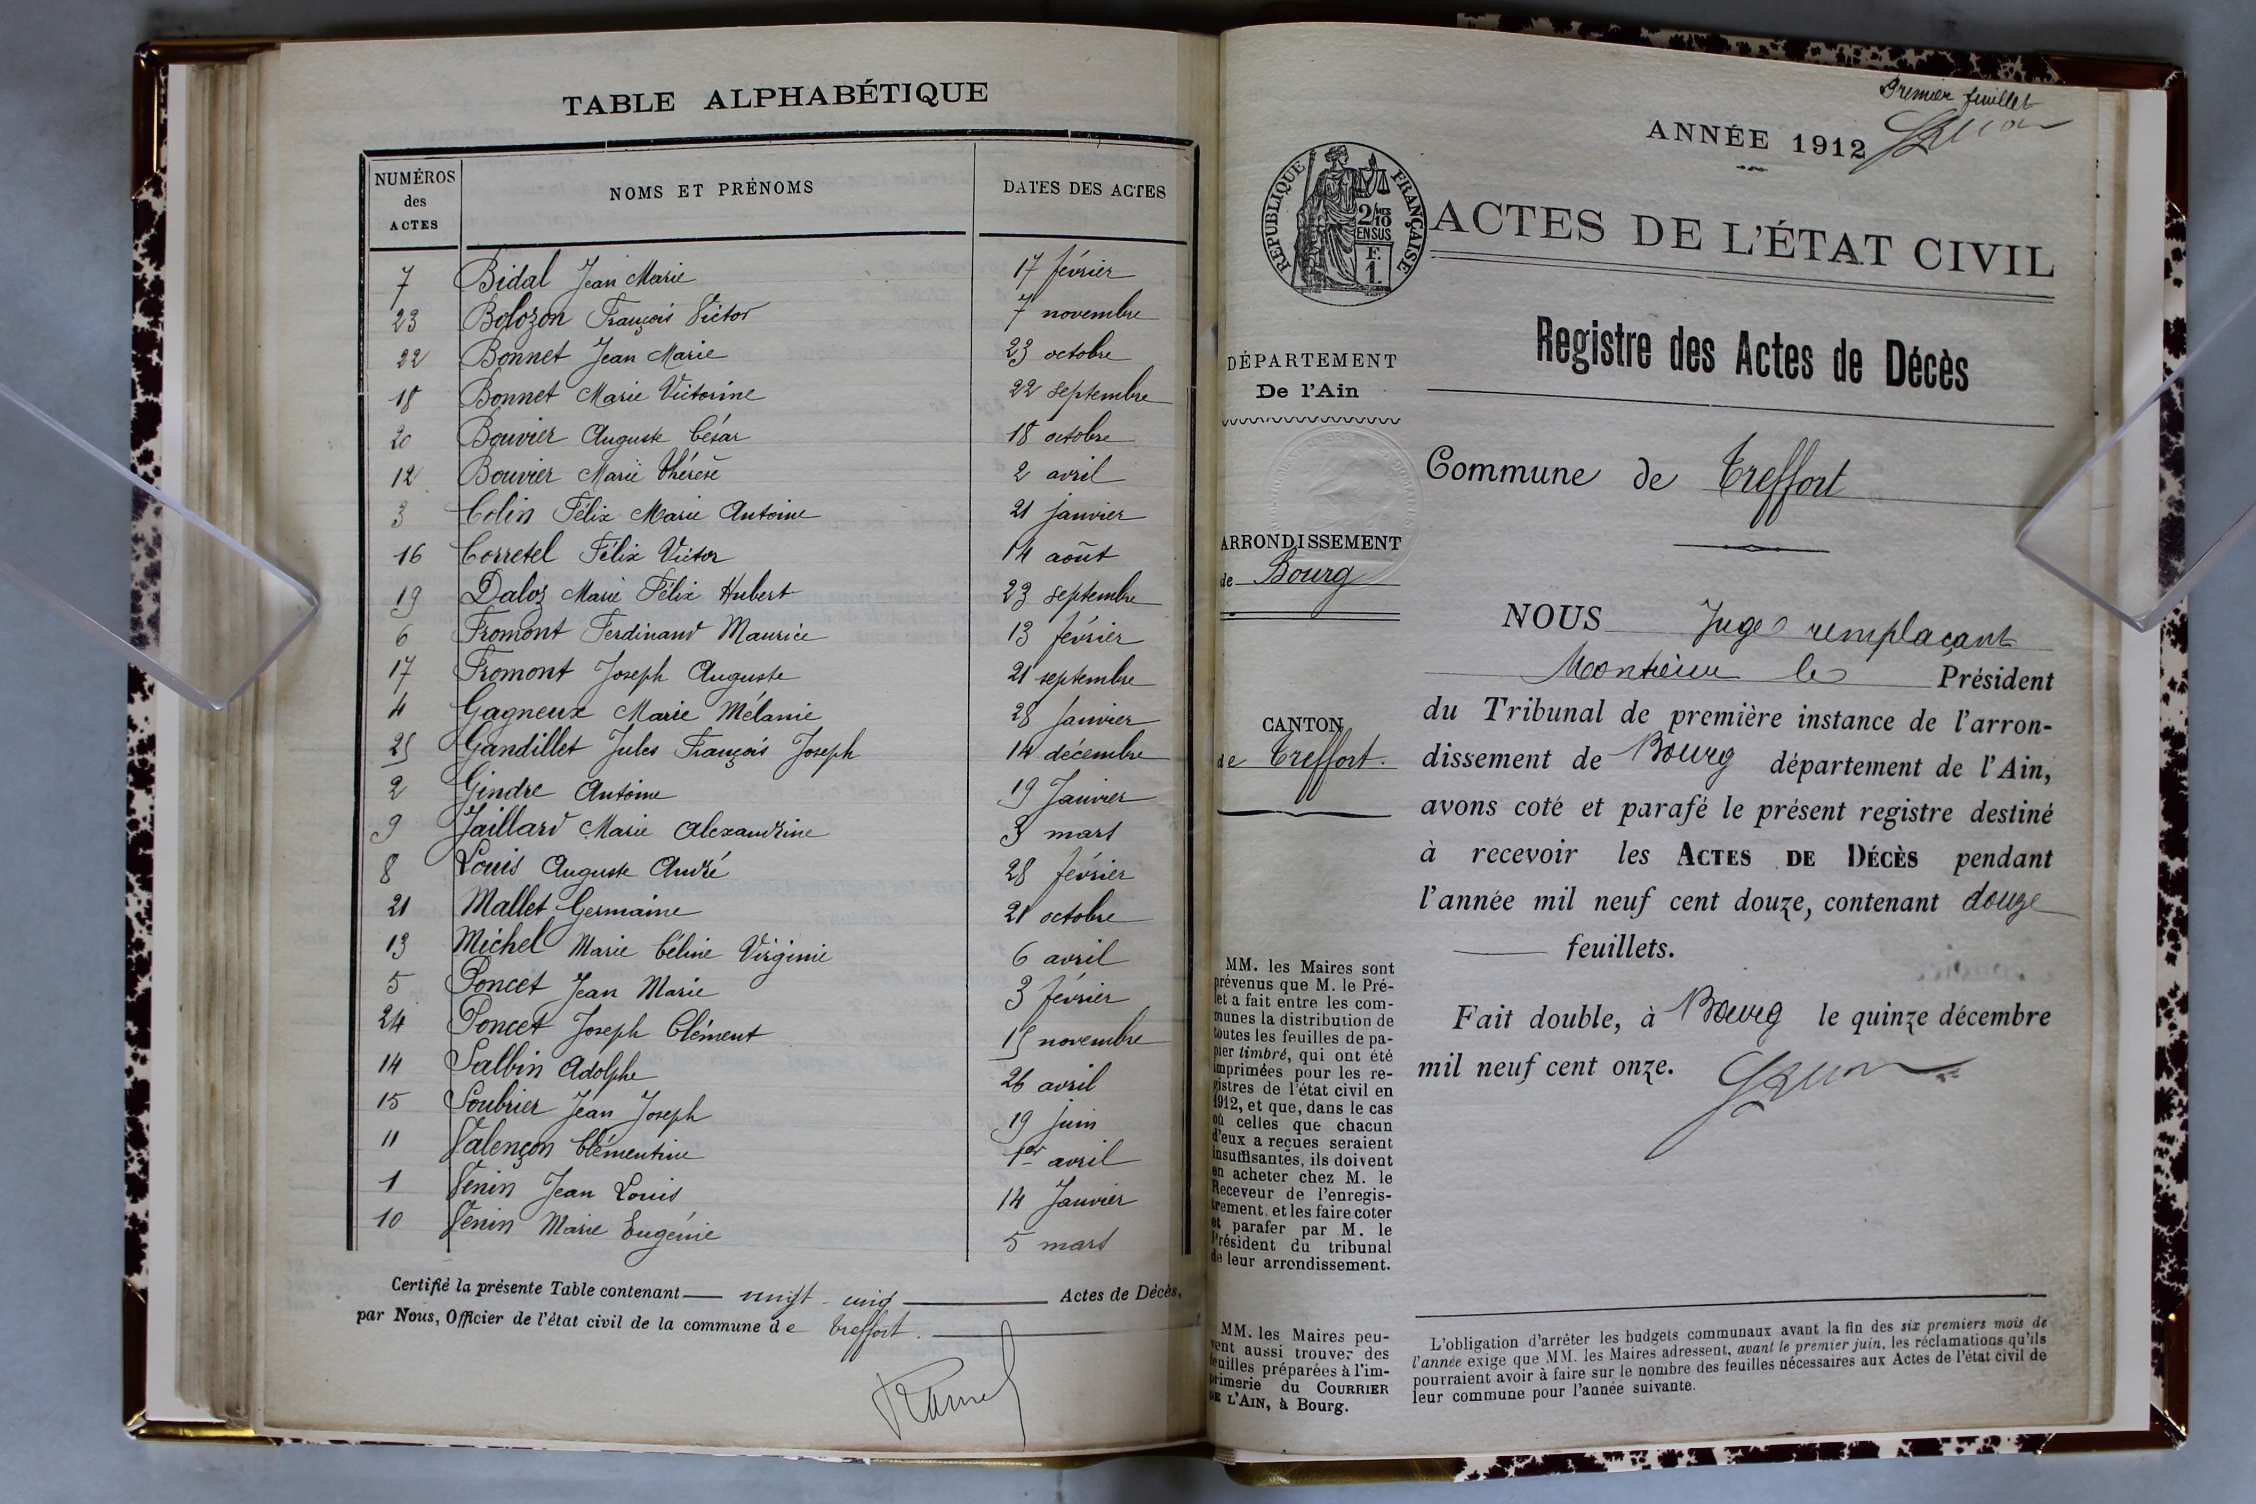 TABLE ALPHABÉTIQUE
NUMÉROS des ACTES NOMS ET PRÉNOMS DATES DES ACTES
7 Bidal Jean Marie 17 février
23 Bolozon François Victor 7 novembre
22 Bonnet Jean Marie 23 octobre
18 Bonnet Marie Victorine 22 septembre
20 Bouvier Auguste César 18 octobre
12 Bouvier Marie Thérèse 2 avril
3 Colin Félix Marie Antoine 21 janvier
16 Corretel Félix Victor 14 août
19 Daloz Marie Félix Hubert 23 septembre
6 Fromont Ferdinand Maurice 13 février
17 Fromont Joseph Auguste 21 septembre
4 Gagneux Marie Mélanie 28 Janvier
25 Gandillet Jules François Joseph 14 décembre
2 Gindre Antoine 19 Janvier
9 Jaillard Marie Alexandrine 3 mars
8 Louis Auguste André 28 février
21 Mallet Germaine 21 octobre
13 Michel Marie Céline Virginie 6 avril
5 Poncet Jean Marie 3 février
24 Poncet Joseph Clément 15 novembre
14 Salbin Adolphe 26 avril
15 Soubrier Jean Joseph 19 juin
11 Valençon Clémentine 1er avril
1 Venin Jean Louis 14 Janvier
10 Venin Marie Eugénie 5 mars
Certifié la présente Table contenant vingt-cinq Actes de Décès,
par Nous, Officier de l'état civil de la commune de Treffort.
Premier feuillet
ANNÉE 1912
RÉPUBLIQUE FRANÇAISE
2/10 MES
EN SUS
F.
1.
ACTES DE L'ÉTAT CIVIL
Registre des Actes de Décès
DÉPARTEMENT
De l'Ain
Commune de Treffort
ARRONDISSEMENT
de Bourg
CANTON
de Treffort.
NOUS Juge remplaçant
Monsieur le Président
du Tribunal de première instance de l'arron-
dissement de Bourg département de l'Ain,
avons coté et parafé le présent registre destiné
à recevoir les ACTES DE DÉCÈS pendant
l'année mil neuf cent douze, contenant douze
feuillets.
Fait double, à Bourg le quinze décembre
mil neuf cent onze.
MM. les Maires sont
prévenus que M. le Pré-
fet a fait entre les com-
munes la distribution de
toutes les feuilles de pa-
pier timbré, qui ont été
imprimées pour les re-
gistres de l'état civil en
1912, et que, dans le cas
où celles que chacun
d'eux a reçues seraient
insuffisantes, ils doivent
en acheter chez M. le
Receveur de l'enregis-
trement, et les faire coter
et parafer par M. le
Président du tribunal
de leur arrondissement.
MM. les Maires peu-
vent aussi trouver des
feuilles préparées à l'im-
primerie du COURRIER
DE L'AIN, à Bourg.
L'obligation d'arrêter les budgets communaux avant la fin des six premiers mois de
l'année exige que MM. les Maires adressent, avant le premier juin, les réclamations qu'ils
pourraient avoir à faire sur le nombre des feuilles nécessaires aux Actes de l'état civil de
leur commune pour l'année suivante.